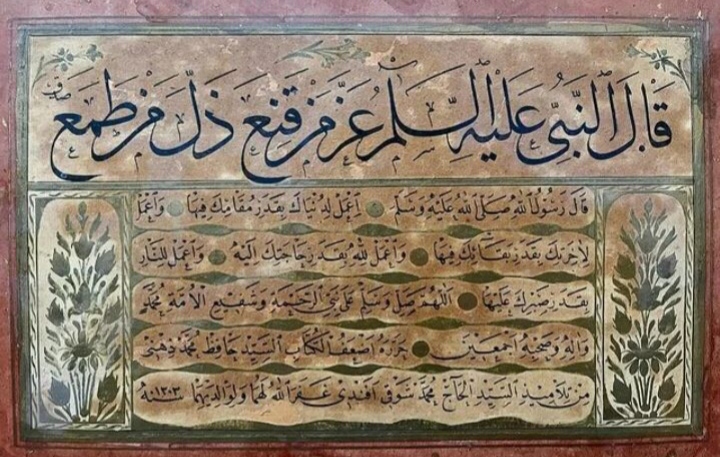 قَالَ النَّبِيُّ عَلَيْهِ السَّلَام عَزَّ مَنْ قَنَعَ ذَلَّ مَنْ طَمَعَ صدق
قَالَ رَسُولُ اللهِ صَلَّى اللهُ عَلَيْهِ وَسَلَّمَ اِعْمَلْ لِدُنْيَاكَ بِقَدَرِ مُقَامِكَ فِيهَا وَاعْمَلْ
لِاٰخِرَتِكَ بِقَدَرِ بَقَائِكَ فِيهَا وَاعْمَلْ لِلّٰهِ بِقَدَرِ حَاجَتِكَ اِلَيْهِ وَاعْمَلْ لِلنَّارِ
بِقَدَرِ صَبْرِكَ عَلَيْهَا اَللّٰهُمَّ صَلِّ وَسَلِّمْ عَلَى نَبِيِّ الرَّحْمَةِ وَشَفِيعِ الْاُمَّةِ مُحَمَّدٍ
وَاٰلِهِ وَصَحْبِهِ اَجْمَعِينَ حَرَّرَهُ اَضْعَفُ الْكُتَّابِ السَّيِّدْ حَافِظْ مُحَمَّدْ ذِهْنِي
مِنْ تَلَامِيذِ السَّيِّدِ الْحَاجّ مُحَمَّدْ شَوْقِي اَفَنْدِي غَفَرَ اللهُ لَهُمَا وَلِوَالِدَيْهِمَا سنه ١٣٠٣